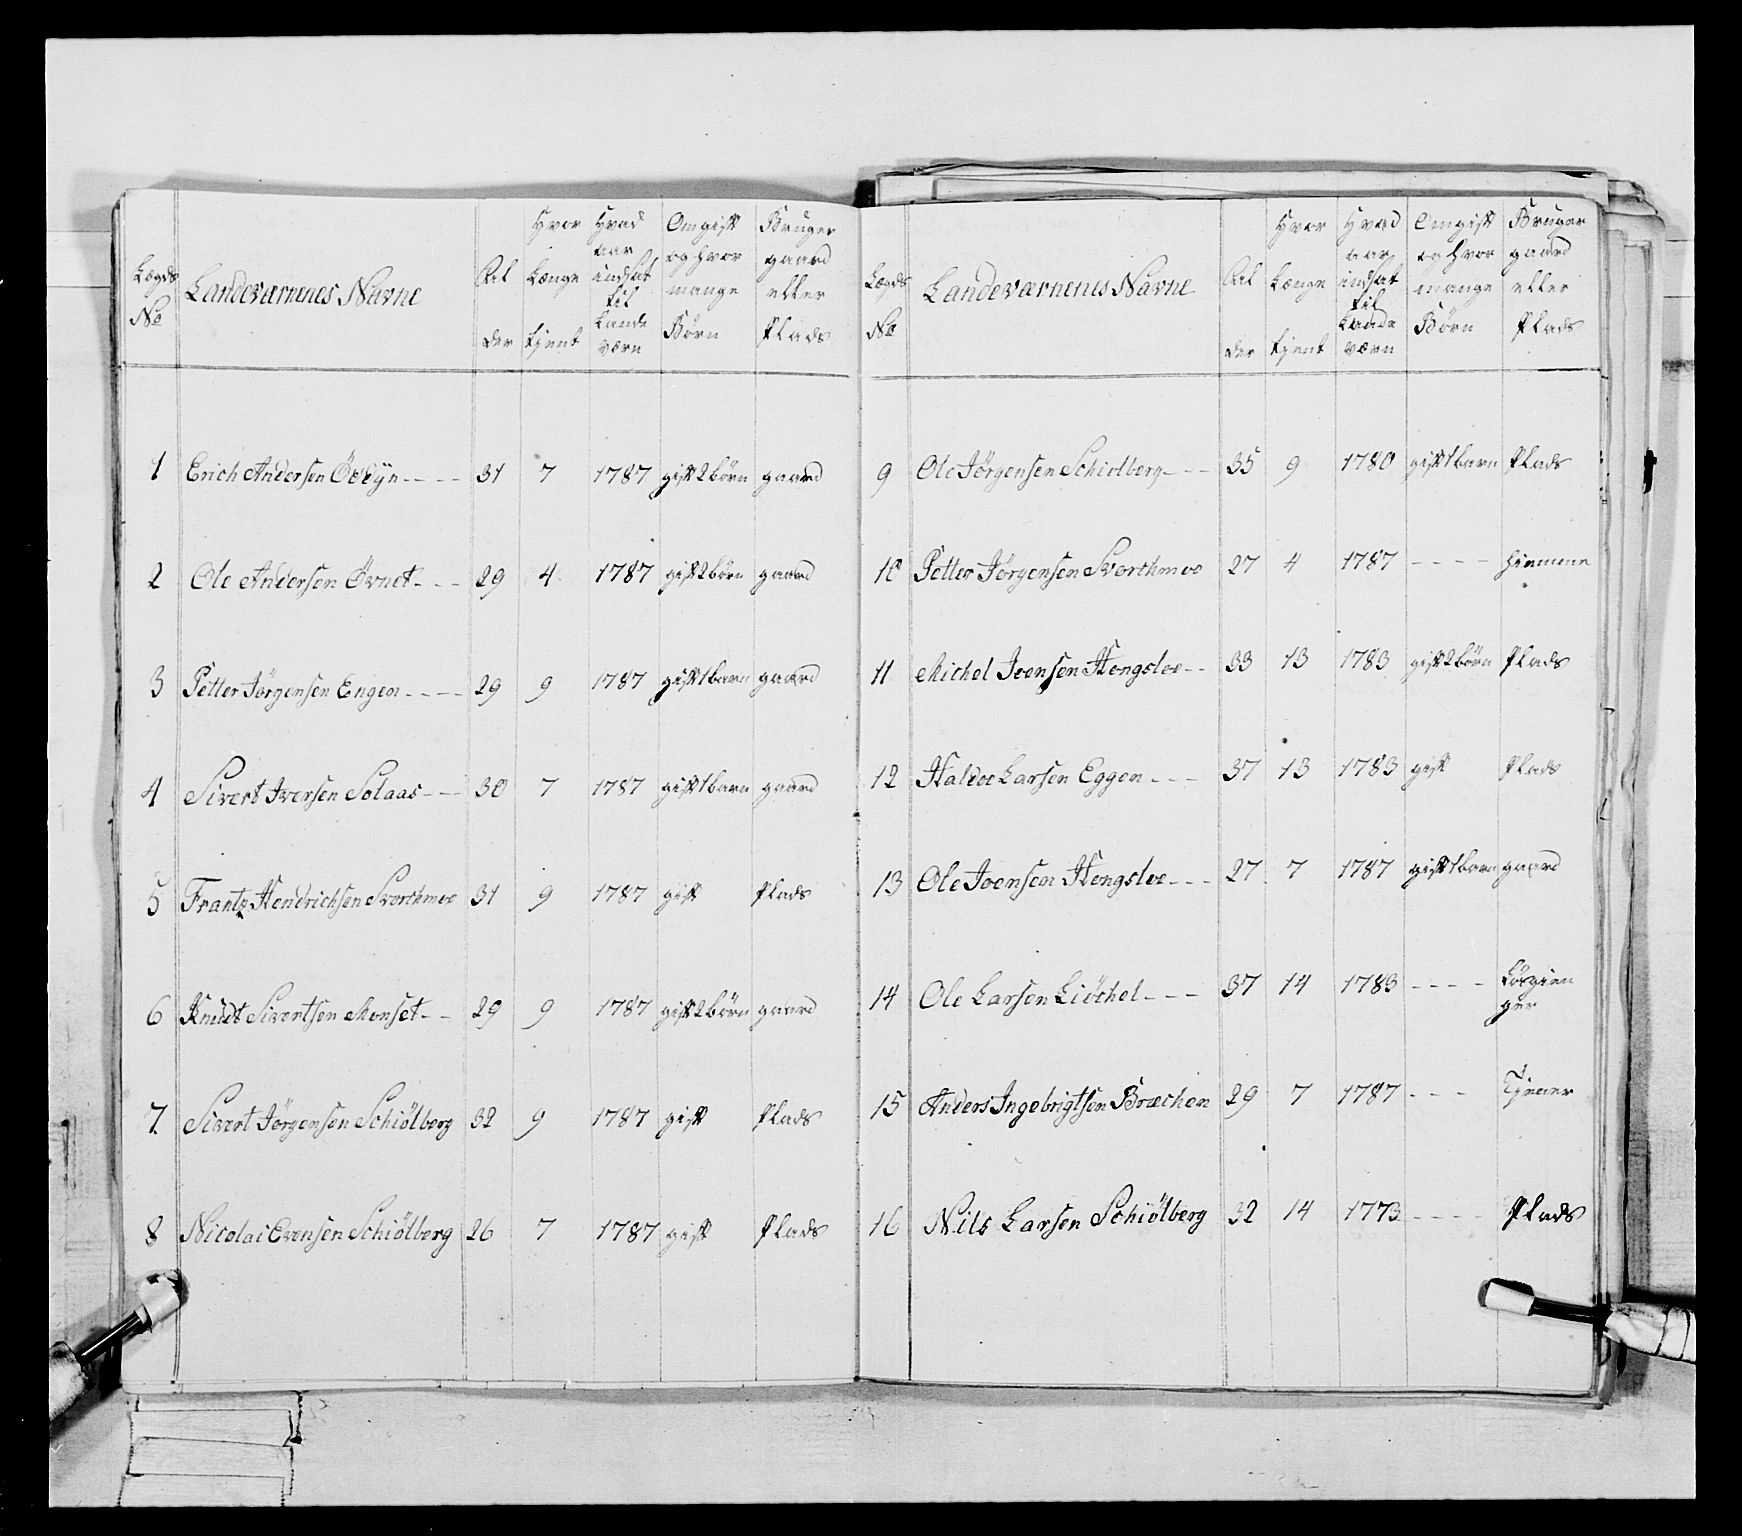 Lægds No | Landeværnenes Navne | Al der | Hvor Længe tjent | Hvad aar indsat til Lande værn | Om gift og hvor mange Börn | Bruger gaard eller Plads
1 Erich Andersen 31 7 1787 gift 2 börn gaard
2 Ole Andersen Övnet - - - 29 4 1787 gift 2 börn gaard
3 Petter Jörgensen Engen - - - - 29 9 1787 gift 1 barn gaard
4 Sivert Iversen Solaas - - - 30 7 1787 gift 1 barn gaard
5 Frantz Hendrichsen Svorthmoe 31 9 1787 gift Plads
6 Knudt Sivertsen Monset - - 29 9 1787 gift 2 börn gaard
7 Sivert Jörgensen Schiölberg 32 9 1787 gift Plads
8 Nicolai Evensen Schiölberg 26 7 1787 gift Plads
Lægds No | Landeværnenes Navne | Al der | Hvor Længe tjent | Hvad aar indsat til Lande værn | Om gift og hvor mange Börn | Bruger gaard eller Plads
9 Ole Jörgensen Schiolberg - - - 35 9 1780 gift 1 barn Plads
10 Petter Jörgensen Svorthmoe 27 4 1787 - - - - hiemme
11 Michel Joensen Hengsloe - - 33 13 1783 gift 2 börn Plads
12 Haldoe Larsen Eggen - - - 37 13 1783 gift Plads
13 Ole Joensen Hengsloe - - - 27 7 1787 gift 1 barn gaard
14 Ole Larsen Liöchel - - - 37 14 1783 - - - - Lösgien
ger
15 Anders Ingebrigtsen Bræchen 29 7 1787 - - - Tjener
16 Nils Larsen Schiölberg 32 14 1773 - - - - Plads